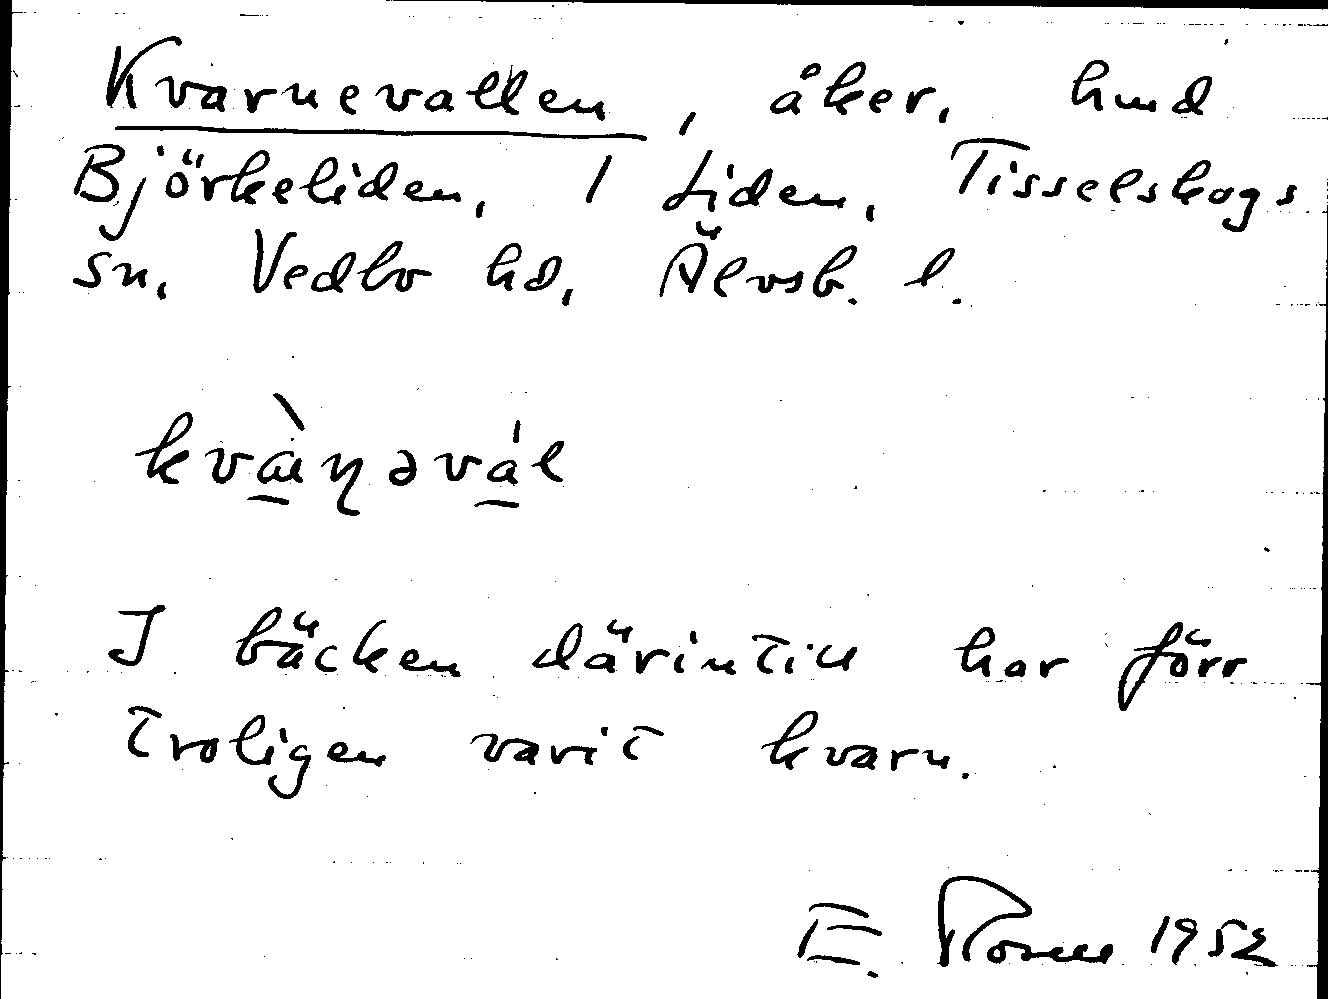 Kvarnevallen, åker, hmd
Björkeliden, 1 Liden, Tisselskogs
sn, Vedbo hd, Älvsb. l.
kvæ̀ɳəvál
I bäcken därintill har förr
troligen varit kvarn.
E. 1952